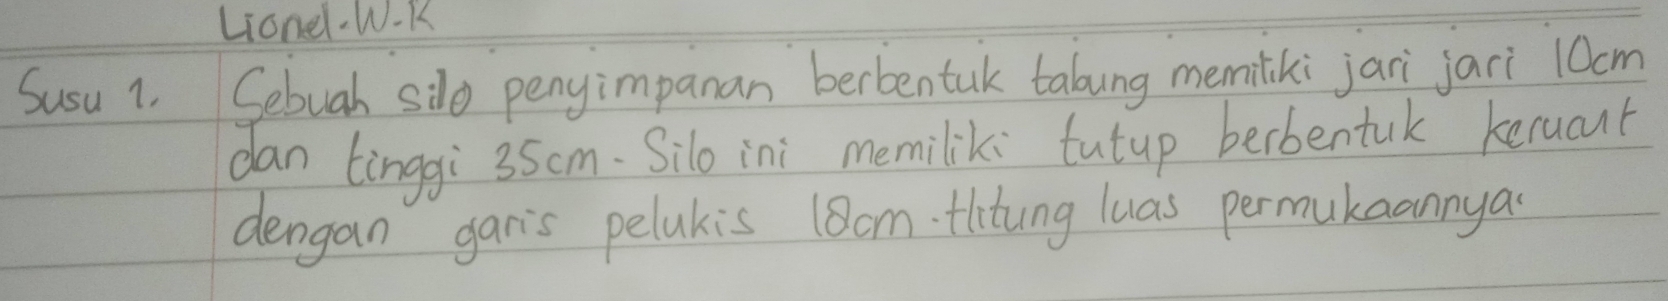 Lionel.W.K
Susu 1. Sebuah silo penyimpanan berbentuk tabung memiliki jari jari 10cm
dan tinggi 35cm. Silo ini memiliki tutup berbentuk kerucut
dengan garis pelukis 18cm. Hitung luas permukaannya.